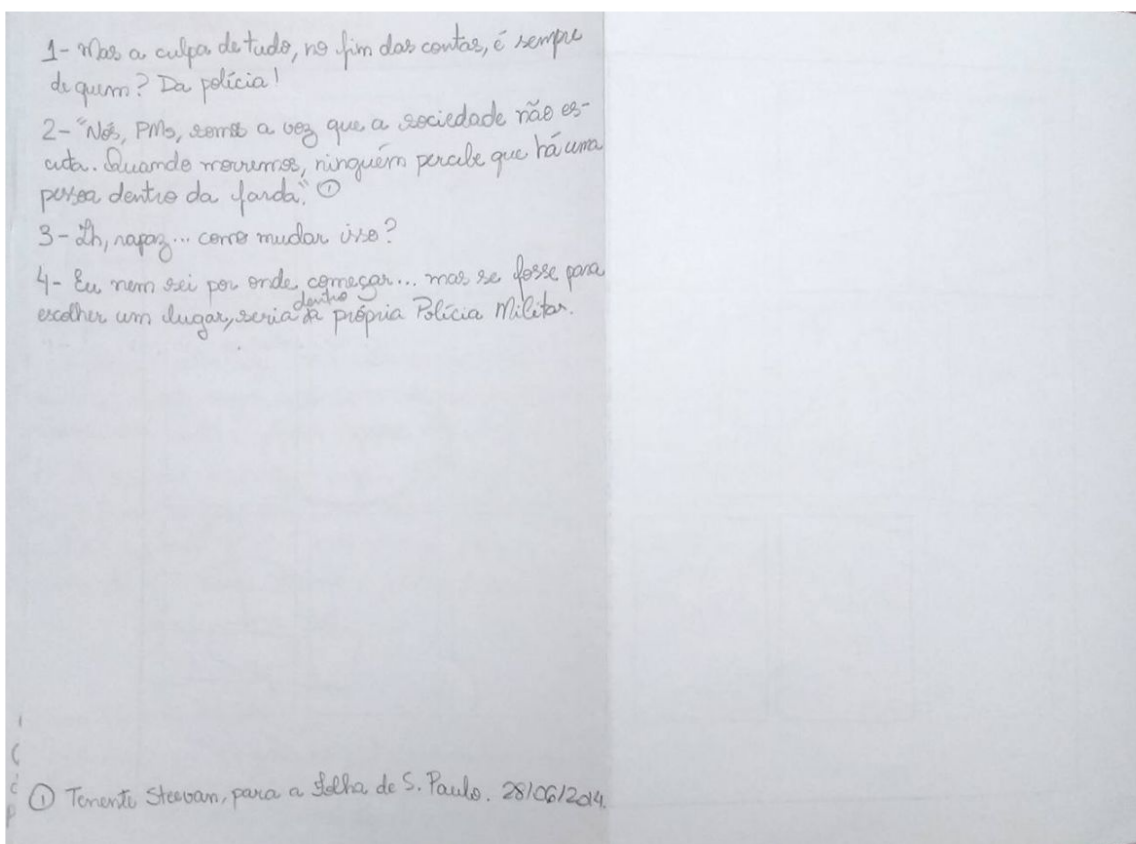 1- Mas a culpa de tudo, no fim das contas, é sempre
de quem? Da polícia!
2- "Nós, PMs, somos a voz que a sociedade não es-
cuta. Quando morremos, ninguém percebe que há uma
pessoa dentro da farda." ①
3- Ih, rapaz... como mudar isso?
4- Eu nem sei por onde começar... mas se fosse para
escolher um lugar, seria dentro da própria Polícia Militar.
① Tenente Steevan, para a Folha de S. Paulo. 28/06/2014.